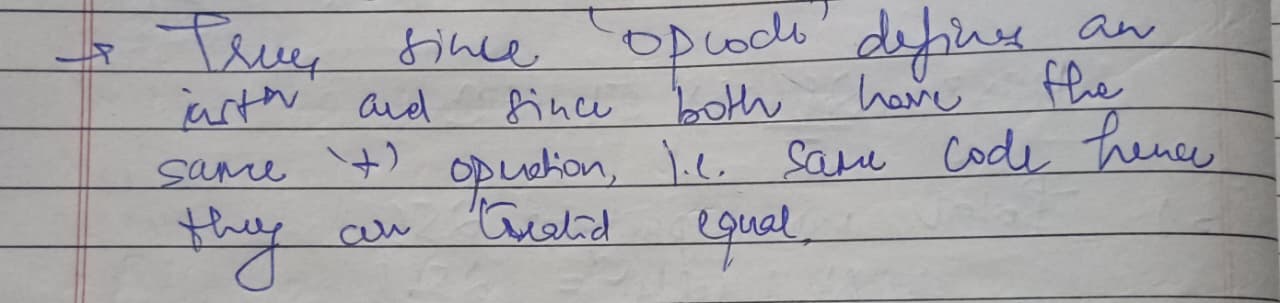 → True, since 'opcode' defines an
instn and since both have the
same '+' operation, i.e. same code hence
they are treated equal.